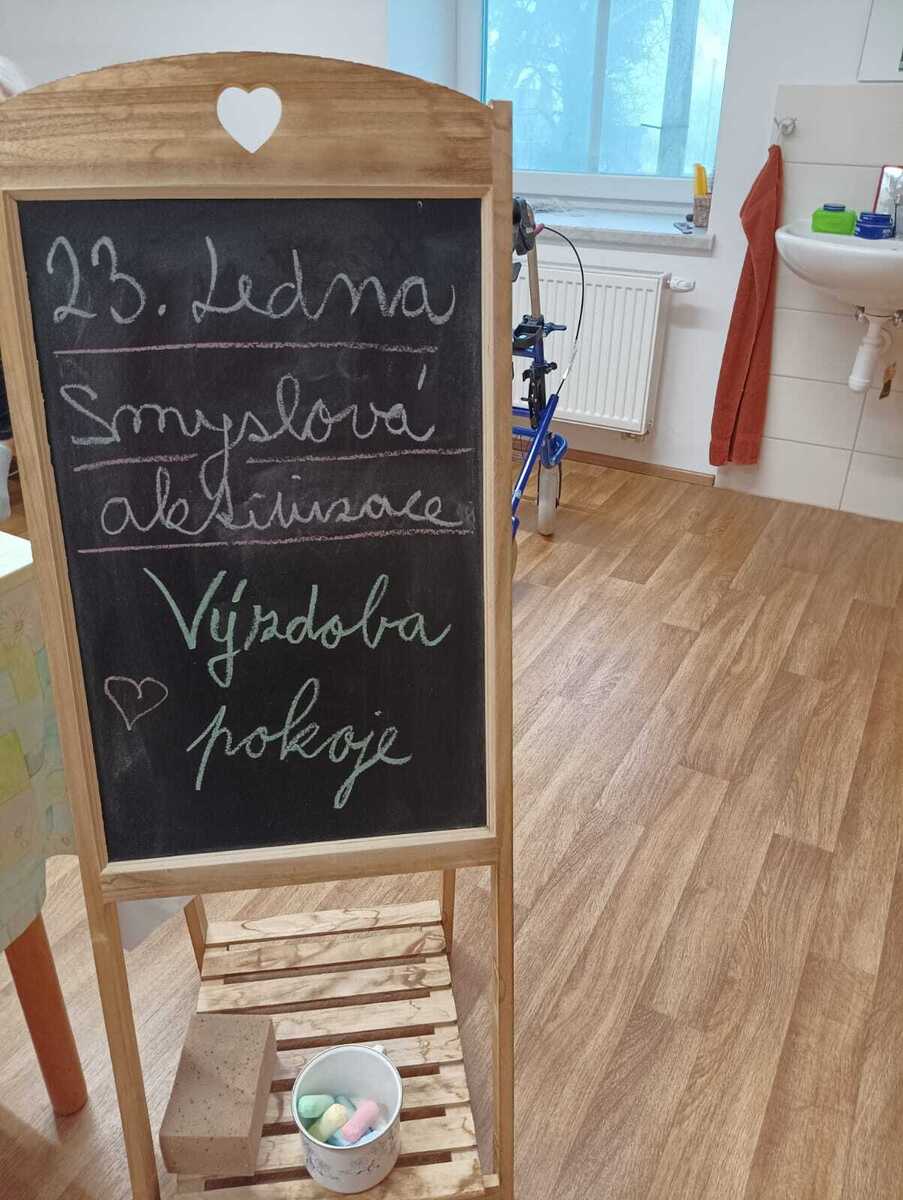 23. Ledna
Smyslová
aktivizace
Výzdoba
pokoje